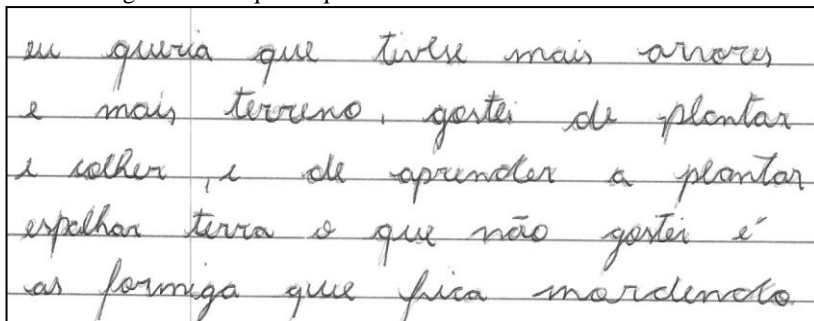 eu queria que tivese mais arvores
e mais terreno, gostei de plantar
e colher, e de aprender a plantar
espalhar terra o que não gostei é
as formiga que fica mordendo